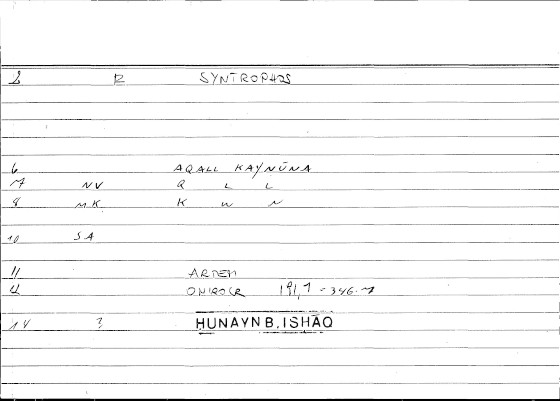 2 R SYNTROPHOS
6 AQALL KAYNŪNA
7 NV Q L L
8 MK K W N
10 SA
11 ARTEM
12 ONIROCR 191,7 = 346.7
14 ? HUNAYN B. ISHĀQ